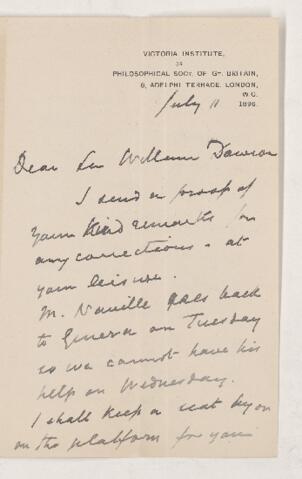 VICTORIA INSTITUTE,
OR
PHILOSOPHICAL SOCY. OF GT. BRITAIN,
8, ADELPHI TERRACE, LONDON,
W.C.
July 11 1896.
Dear Sir William Dawson
I send a proof of
your kind remarks for
any corrections - at
your leisure.
M. Naville goes back
to Geneva on Tuesday
so we cannot have his
help on Wednesday.
I shall keep a seat
on the platform for you